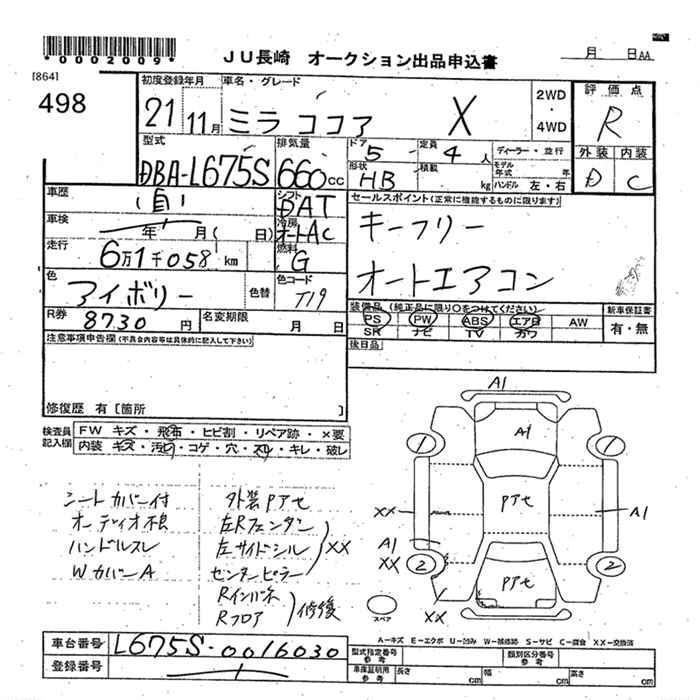 *0002009*
JU長崎 オークション出品申込書
月 日AA
[864]
498
初度登録年月
21 11月
車名・グレード
ミラ ココア X
2WD
・
4WD
評価点
R
外装 内装
D C
型式
DBA-L675S
排気量
660cc
ドア
5
定員
4人
形状
HB
積載
kg
ディーラー・並行
モデル年式 年
ハンドル 左・右
車歴
(自)
シフト
DAT
車検
年 月( 日)
冷房
オートAC
走行
6万1千058 km
燃料
G
色
アイボリー
色替
色コード
T19
R券
8730円
名変期限
月 日
セールスポイント(正常に機能するものに限ります)
キーフリー
オートエアコン
装備品(純正品に限り○をつけてください)
PS PW ABS エアB AW
SR ナビ TV カワ
新車保証書
有・無
後日品
注意事項申告欄(不具合内容等は具体的に記入して下さい)
修復歴 有〔箇所 〕
検査員記入欄
FW キズ・飛石・ヒビ割・リペア跡・×要
内装 キズ・汚れ・コゲ・穴・スレ・キレ・破レ
シートカバー付
オーディオ不良
ハンドルスレ
WカバーA
外装Pアセ
左Rフェンダー
左サイドシル
センターピラー
XX
Rインパネ
Rフロア
修復
A1
A1
1
1
Pアセ
XX
A1
A1
XX
2
2
Pアセ
XX
スペア
A-キズ E-エクボ U-凹み W-補修跡 S-サビ C-腐食 XX-交換済
車台番号
L675S-0016030
登録番号
型式指定番号
参考
類別区分番号
参考
車庫証明用
参考
長さ cm
幅 cm
高さ cm